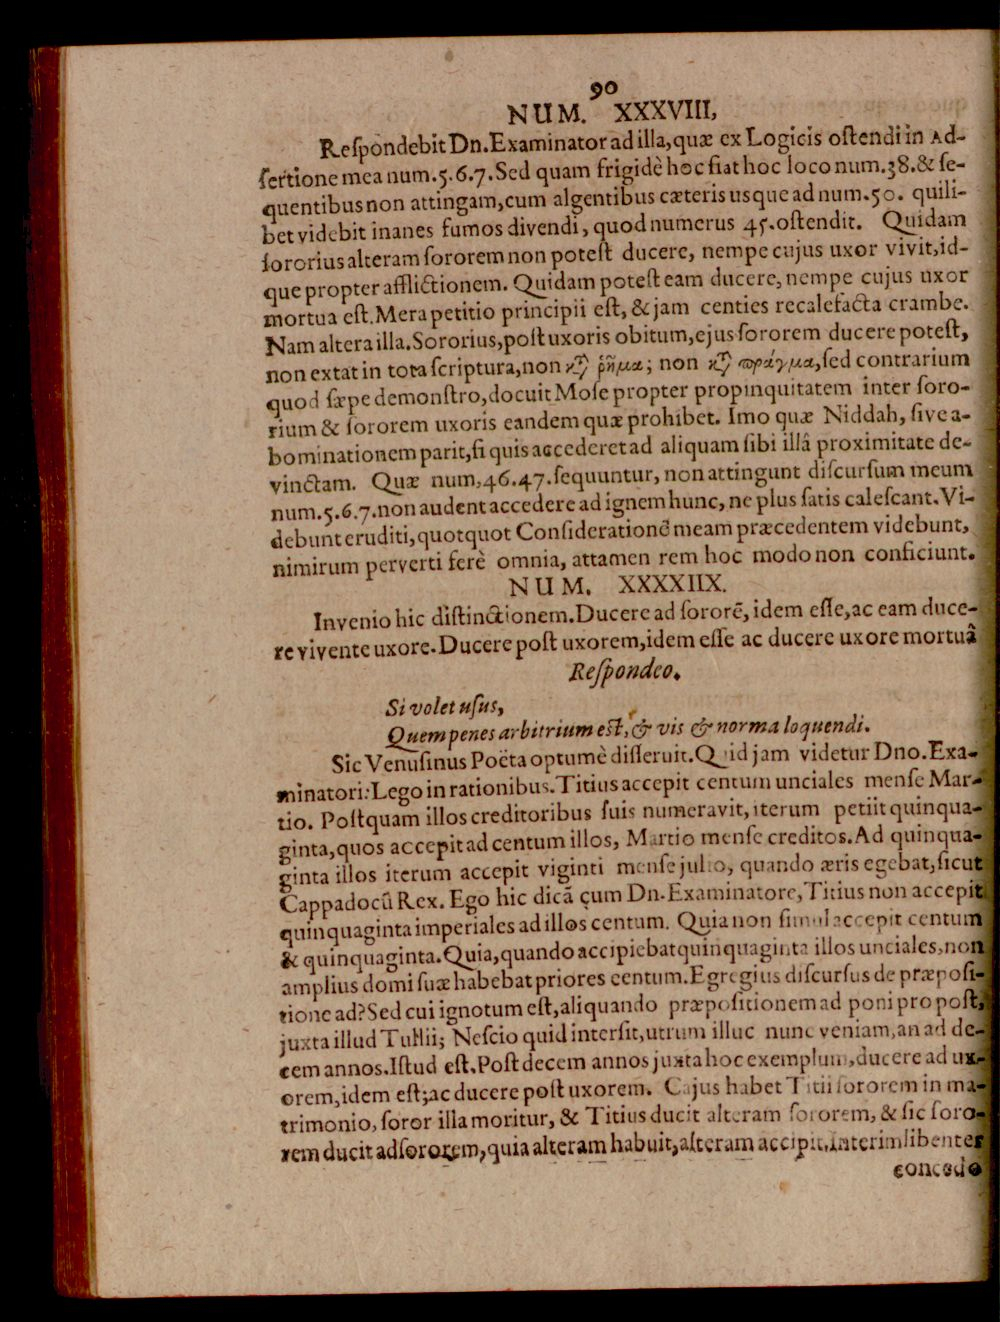 90
NUM. XXXVIII,
Reſpondebit Dn. Examinator ad illa, quæ ex Logicis oſtendi in Ad-
ſertione mea num. 5. 6. 7. Sed quam frigidè hoc fiat hoc loco num. 38. & ſe-
quentibus non attingam, cum algentibus cæteris usque ad num. 50. quili-
bet videbit inanes fumos divendi, quod numerus 45. oſtendit. Quidam
ſororius alteram ſororem non poteſt ducere, nempe cujus uxor vivit, id-
que propter afflictionem. Quidam poteſt eam ducere, nempe cujus uxor
mortua eſt. Mera petitio principii eſt, & jam centies recalefacta crambe.
Nam altera illa. Sororius, poſt uxoris obitum, ejus ſororem ducere poteſt,
non extat in tota ſcriptura, non κτ̃ ῥῆμα; non κτ̃ πράγμα, ſed contrarium
quod ſæpe demonſtro, docuit Moſe propter propinquitatem inter ſoro-
rium & ſororem uxoris eandem quæ prohibet. Imo quæ Niddah, ſive a-
bominationem parit, ſi quis accederet ad aliquam ſibi illâ proximitate de-
vinctam. Quæ num, 46. 47. ſequuntur, non attingunt diſcurſum meum
num. 5. 6. 7. non audent accedere ad ignem hunc, ne plus ſatis caleſcant. Vi-
debunt eruditi, quotquot Conſiderationē meam præcedentem videbunt,
nimirum perverti ferè omnia, attamen rem hoc modo non conficiunt.
NUM. XXXXIIX.
Invenio hic diſtinctionem. Ducere ad ſororē, idem eſſe, ac eam duce-
re vivente uxore. Ducere poſt uxorem, idem eſſe ac ducere uxore mortuâ
Reſpondeo.
Si volet uſus,
Quem penes arbitrium eſt, & vis & norma loquendi.
Sic Venuſinus Poëta optumè diſſeruit. Quid jam videtur Dno. Exa-
minatori: Lego in rationibus. Titius accepit centum unciales menſe Mar-
tio. Poſtquam illos creditoribus ſuis numeravit, iterum petiit quinqua-
ginta, quos accepit ad centum illos, Martio menſe creditos. Ad quinqua-
ginta illos iterum accepit viginti menſe julio, quando æris egebat, ſicut
Cappadocū Rex. Ego hic dicā cum Dn. Examinatore, Titius non accepit
quinquaginta imperiales ad illos centum. Quia non ſimul accepit centum
& quinquaginta. Quia, quando accipiebat quinquaginta illos unciales, non
amplius domi ſuæ habebat priores centum. Egregius diſcurſus de præpoſi-
tione ad? Sed cui ignotum eſt, aliquando præpoſitionem ad poni pro poſt,
juxta illud Tullii; Neſcio quid interſit, utrum illuc nunc veniam, an ad de-
cem annos. Iſtud eſt. Poſt decem annos juxta hoc exemplum, ducere ad ux-
orem, idem eſt; ac ducere poſt uxorem. Cajus habet Titii ſororem in ma-
trimonio, ſoror illa moritur, & Titius ducit alteram ſororem, & ſic ſoro-
rem ducit ad ſororem, quia alteram habuit, alteram accipit. interim libenter
concedo